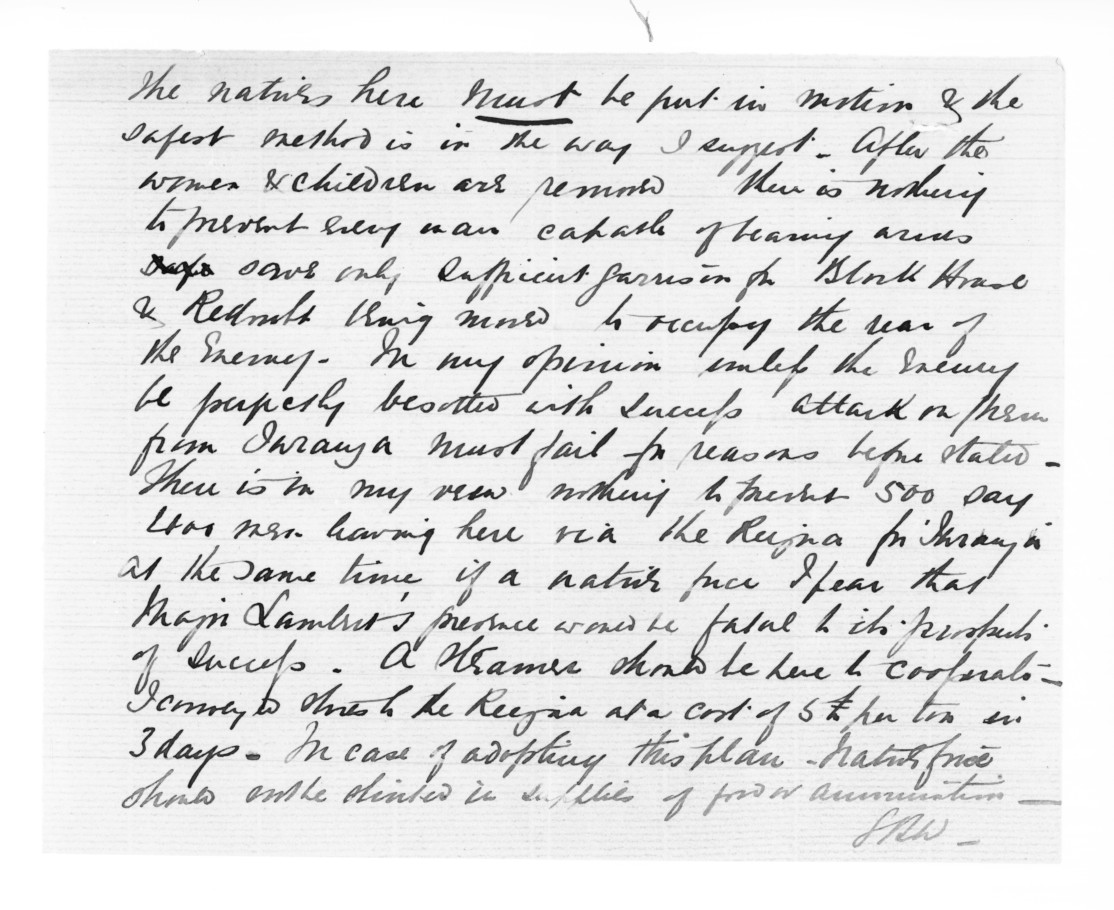 the natives here must be put in motion & the
safest method is in the way I suggest. After the
women & children are removed there is nothing
to prevent every man capable of bearing arms
save only sufficient garrison for Block House
& Redoubt being moved to occupy the rear of
the Enemy. In my opinion unless the Enemy
be perfectly besotted with success attack on them
from Turanga must fail for reasons before stated -
There is in my view nothing to prevent 500 say
men leaving here via the Reigna for Turanga
at the same time if a native force I fear that
Major Lambert's presence would be fatal to its prospects
of success. A Steamer should be here to cooperate -
I convey stores to the Reigna at a cost of 5 per ton in
3 days - In case of adopting this plan - Native force
should not be stinted in supplies of food or ammunition -